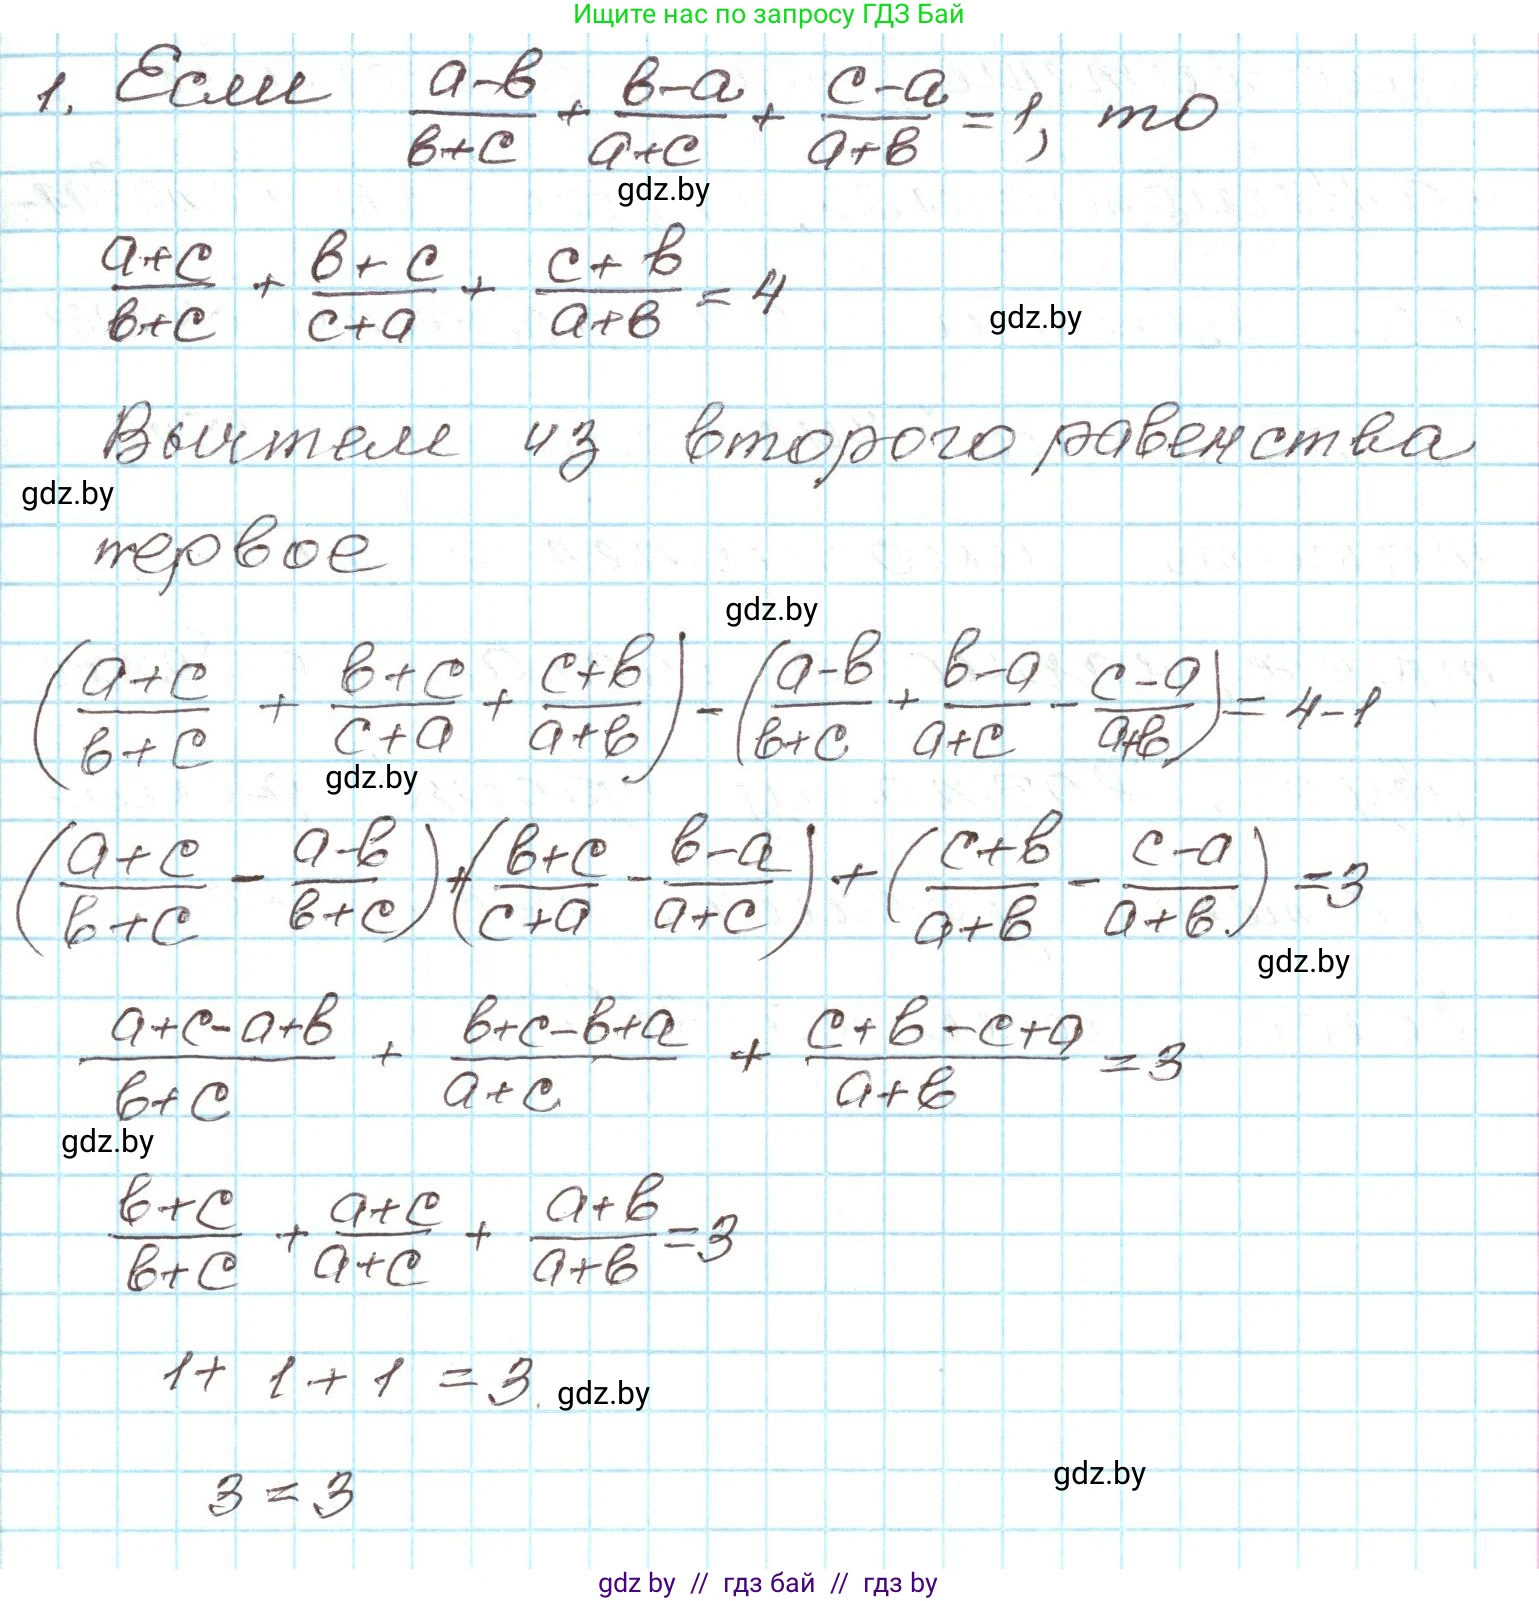 Ищите нас по запросу ГДЗ Бай
1. Если (a-b)/(b+c) + (b-a)/(a+c) + (c-a)/(a+b) = 1, то
gdz.by
(a+c)/(b+c) + (b+c)/(c+a) + (c+b)/(a+b) = 4
gdz.by
Вычтем из второго равенства
gdz.by
первое
gdz.by
((a+c)/(b+c) + (b+c)/(c+a) + (c+b)/(a+b)) - ((a-b)/(b+c) + (b-a)/(a+c) - (c-a)/(a+b)) = 4-1
gdz.by
((a+c)/(b+c) - (a-b)/(b+c)) + ((b+c)/(c+a) - (b-a)/(a+c)) + ((c+b)/(a+b) - (c-a)/(a+b)) = 3
gdz.by
(a+c-a+b)/(b+c) + (b+c-b+a)/(a+c) + (c+b-c+a)/(a+b) = 3
gdz.by
(b+c)/(b+c) + (a+c)/(a+c) + (a+b)/(a+b) = 3
1 + 1 + 1 = 3
gdz.by
3 = 3
gdz.by
gdz by // гдз бай // гдз by